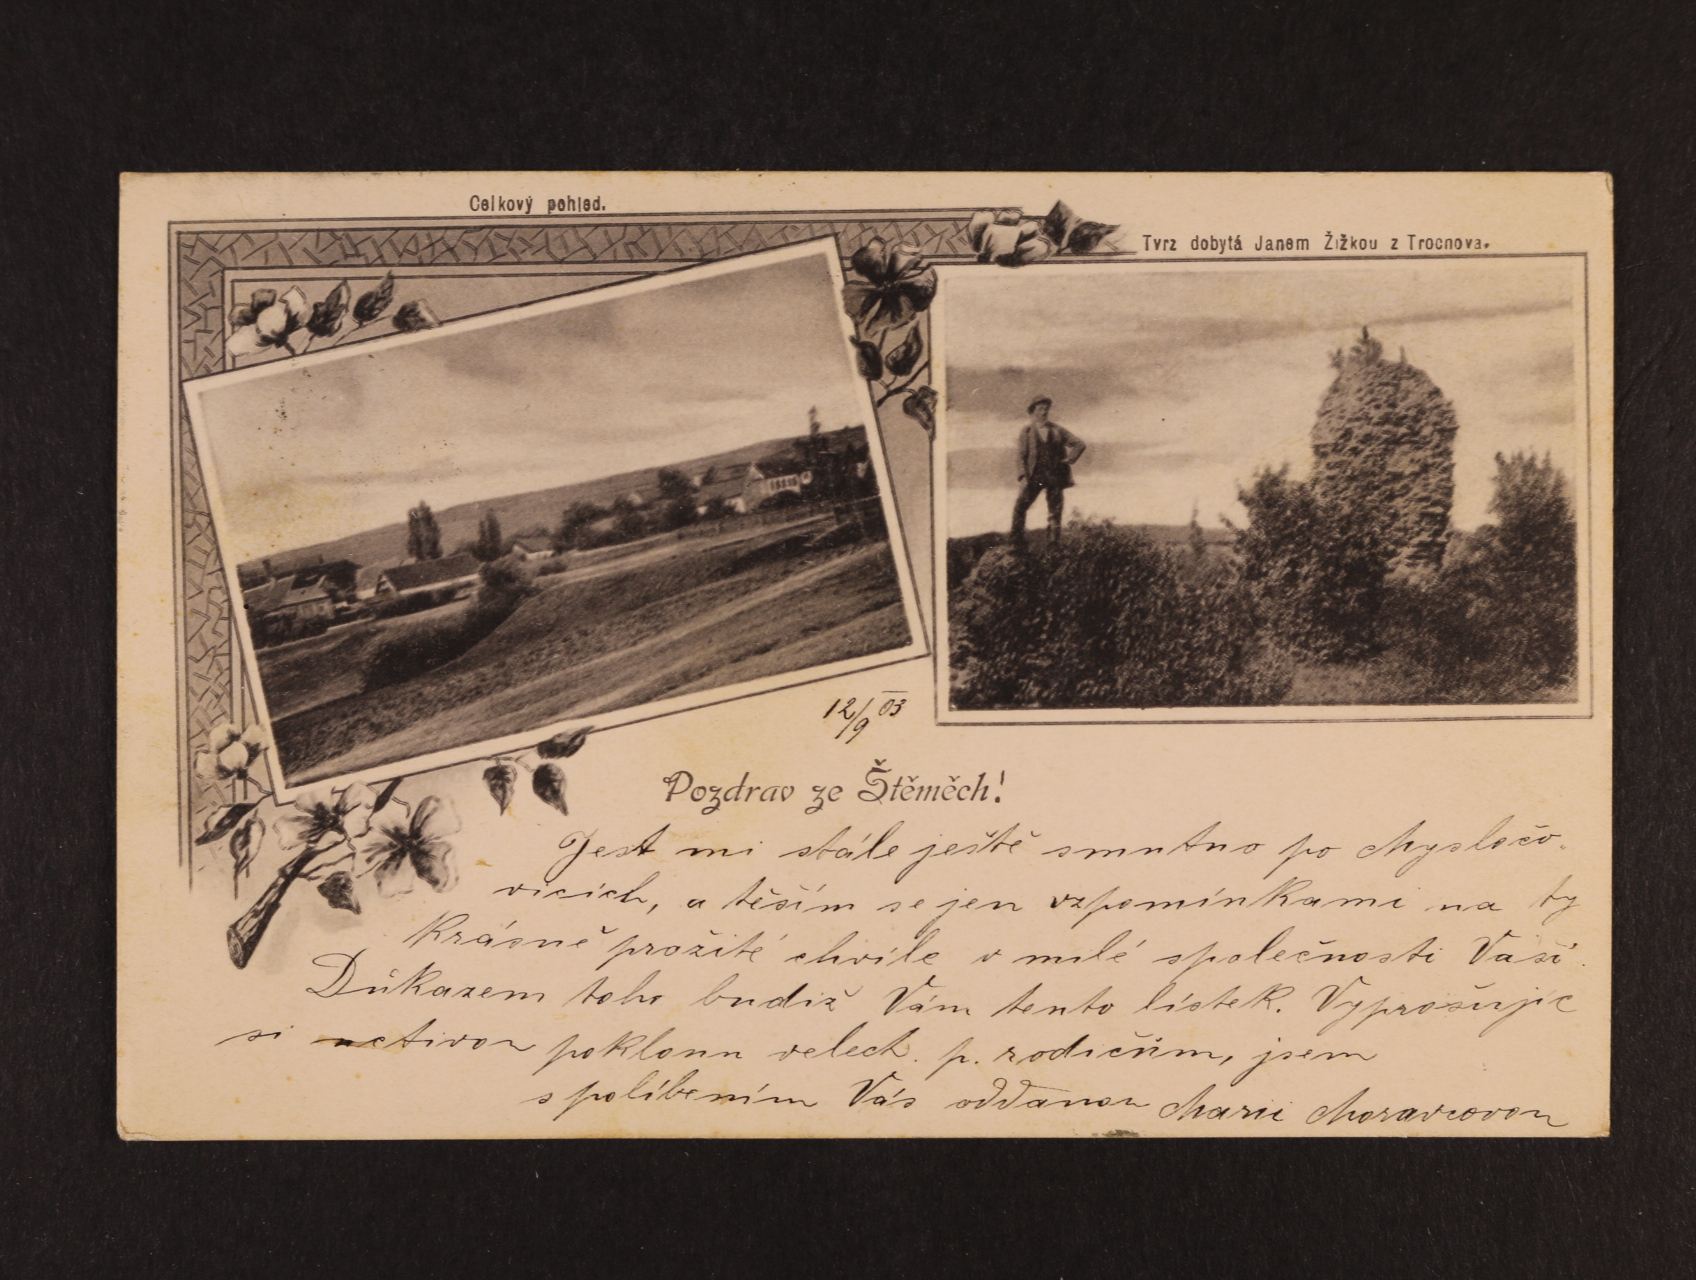 Celkový pohled.
Tvrz dobytá Janem Žižkou z Trocnova.
12/9 03
Pozdrav ze Štěměch!
Jest mi stále ještě smutno po Mysločo-
vicích, a těším se jen vzpomínkami na ty
krásně prožité chvíle v milé společnosti Vaší.
Důkazem toho budiž Vám tento lístek. Vyprošujíc
si uctivou poklonu velect. p. rodičům, jsem
s políbením Vás oddanou Marií Moravcovou